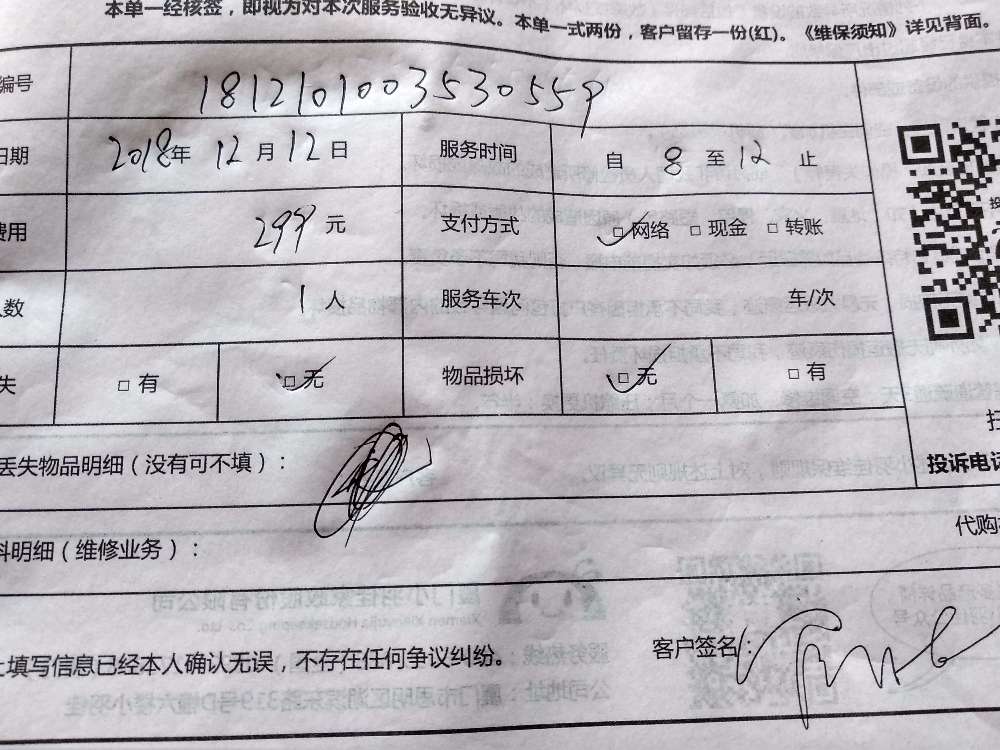 本单一经核签，即视为对本次服务验收无异议。本单一式两份，客户留存一份(红)。《维保须知》详见背面。
编号 1812101003530559
日期 2018年 12月12日 服务时间 自 8 至 12 止
费用 299 元 支付方式 □网络 □现金 □转账
人数 1人 服务车次 车/次
失 □有 □无 物品损坏 □无 □有
丢失物品明细（没有可不填）：
投诉电话
代购
料明细（维修业务）：
上填写信息已经本人确认无误，不存在任何争议纠纷。
客户签名：